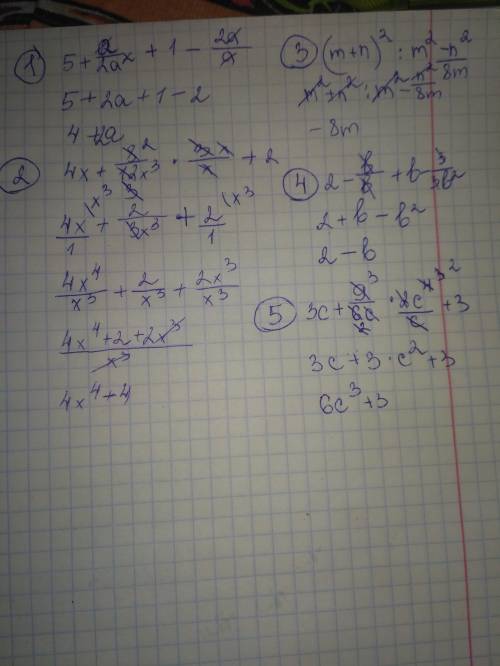 1) 5 + a/2a x + 1 - 2a/a
5 + 2a + 1 - 2
4 + 2a
2 4x + 2/3x³ · x/x + 2
4x/1 (x³ + 2/3x³ + 2/1 (x³
4x⁴/x³ + 2/x³ + 2x³/x³
4x⁴ + 2 + 2x³/x³
4x⁴ + 4
3 (m + n)² : m² - n²/8m
m² + n² : m² - n²/-8m
- 8m
4 2 - b/b + b 3/3b²
2 + b - b²
2 - b
5 3c + 9³/6c2 · 2c/c + 3
3c + 3 · c² + 3
6c³ + 3